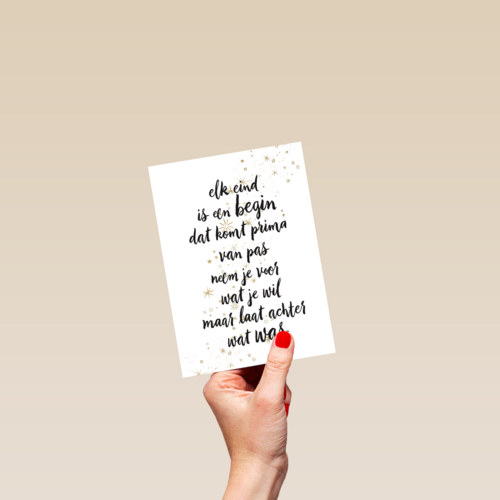 elk eind
is een begin
dat komt prima
van pas
neem je voor
wat je wil
maar laat achter
wat was